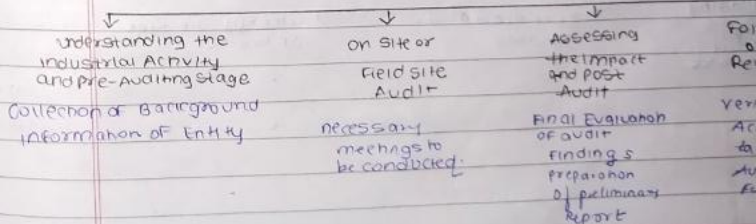 understanding the
industrial Activity
and pre-Auditing stage
Collection of Background
information of Entity
on site or
Field site
Audit
necessary
meetings to
be conducted.
Assessing
the impact
and post
Audit
Final Evaluation
of audit
Findings
preparation
of preliminary
Report